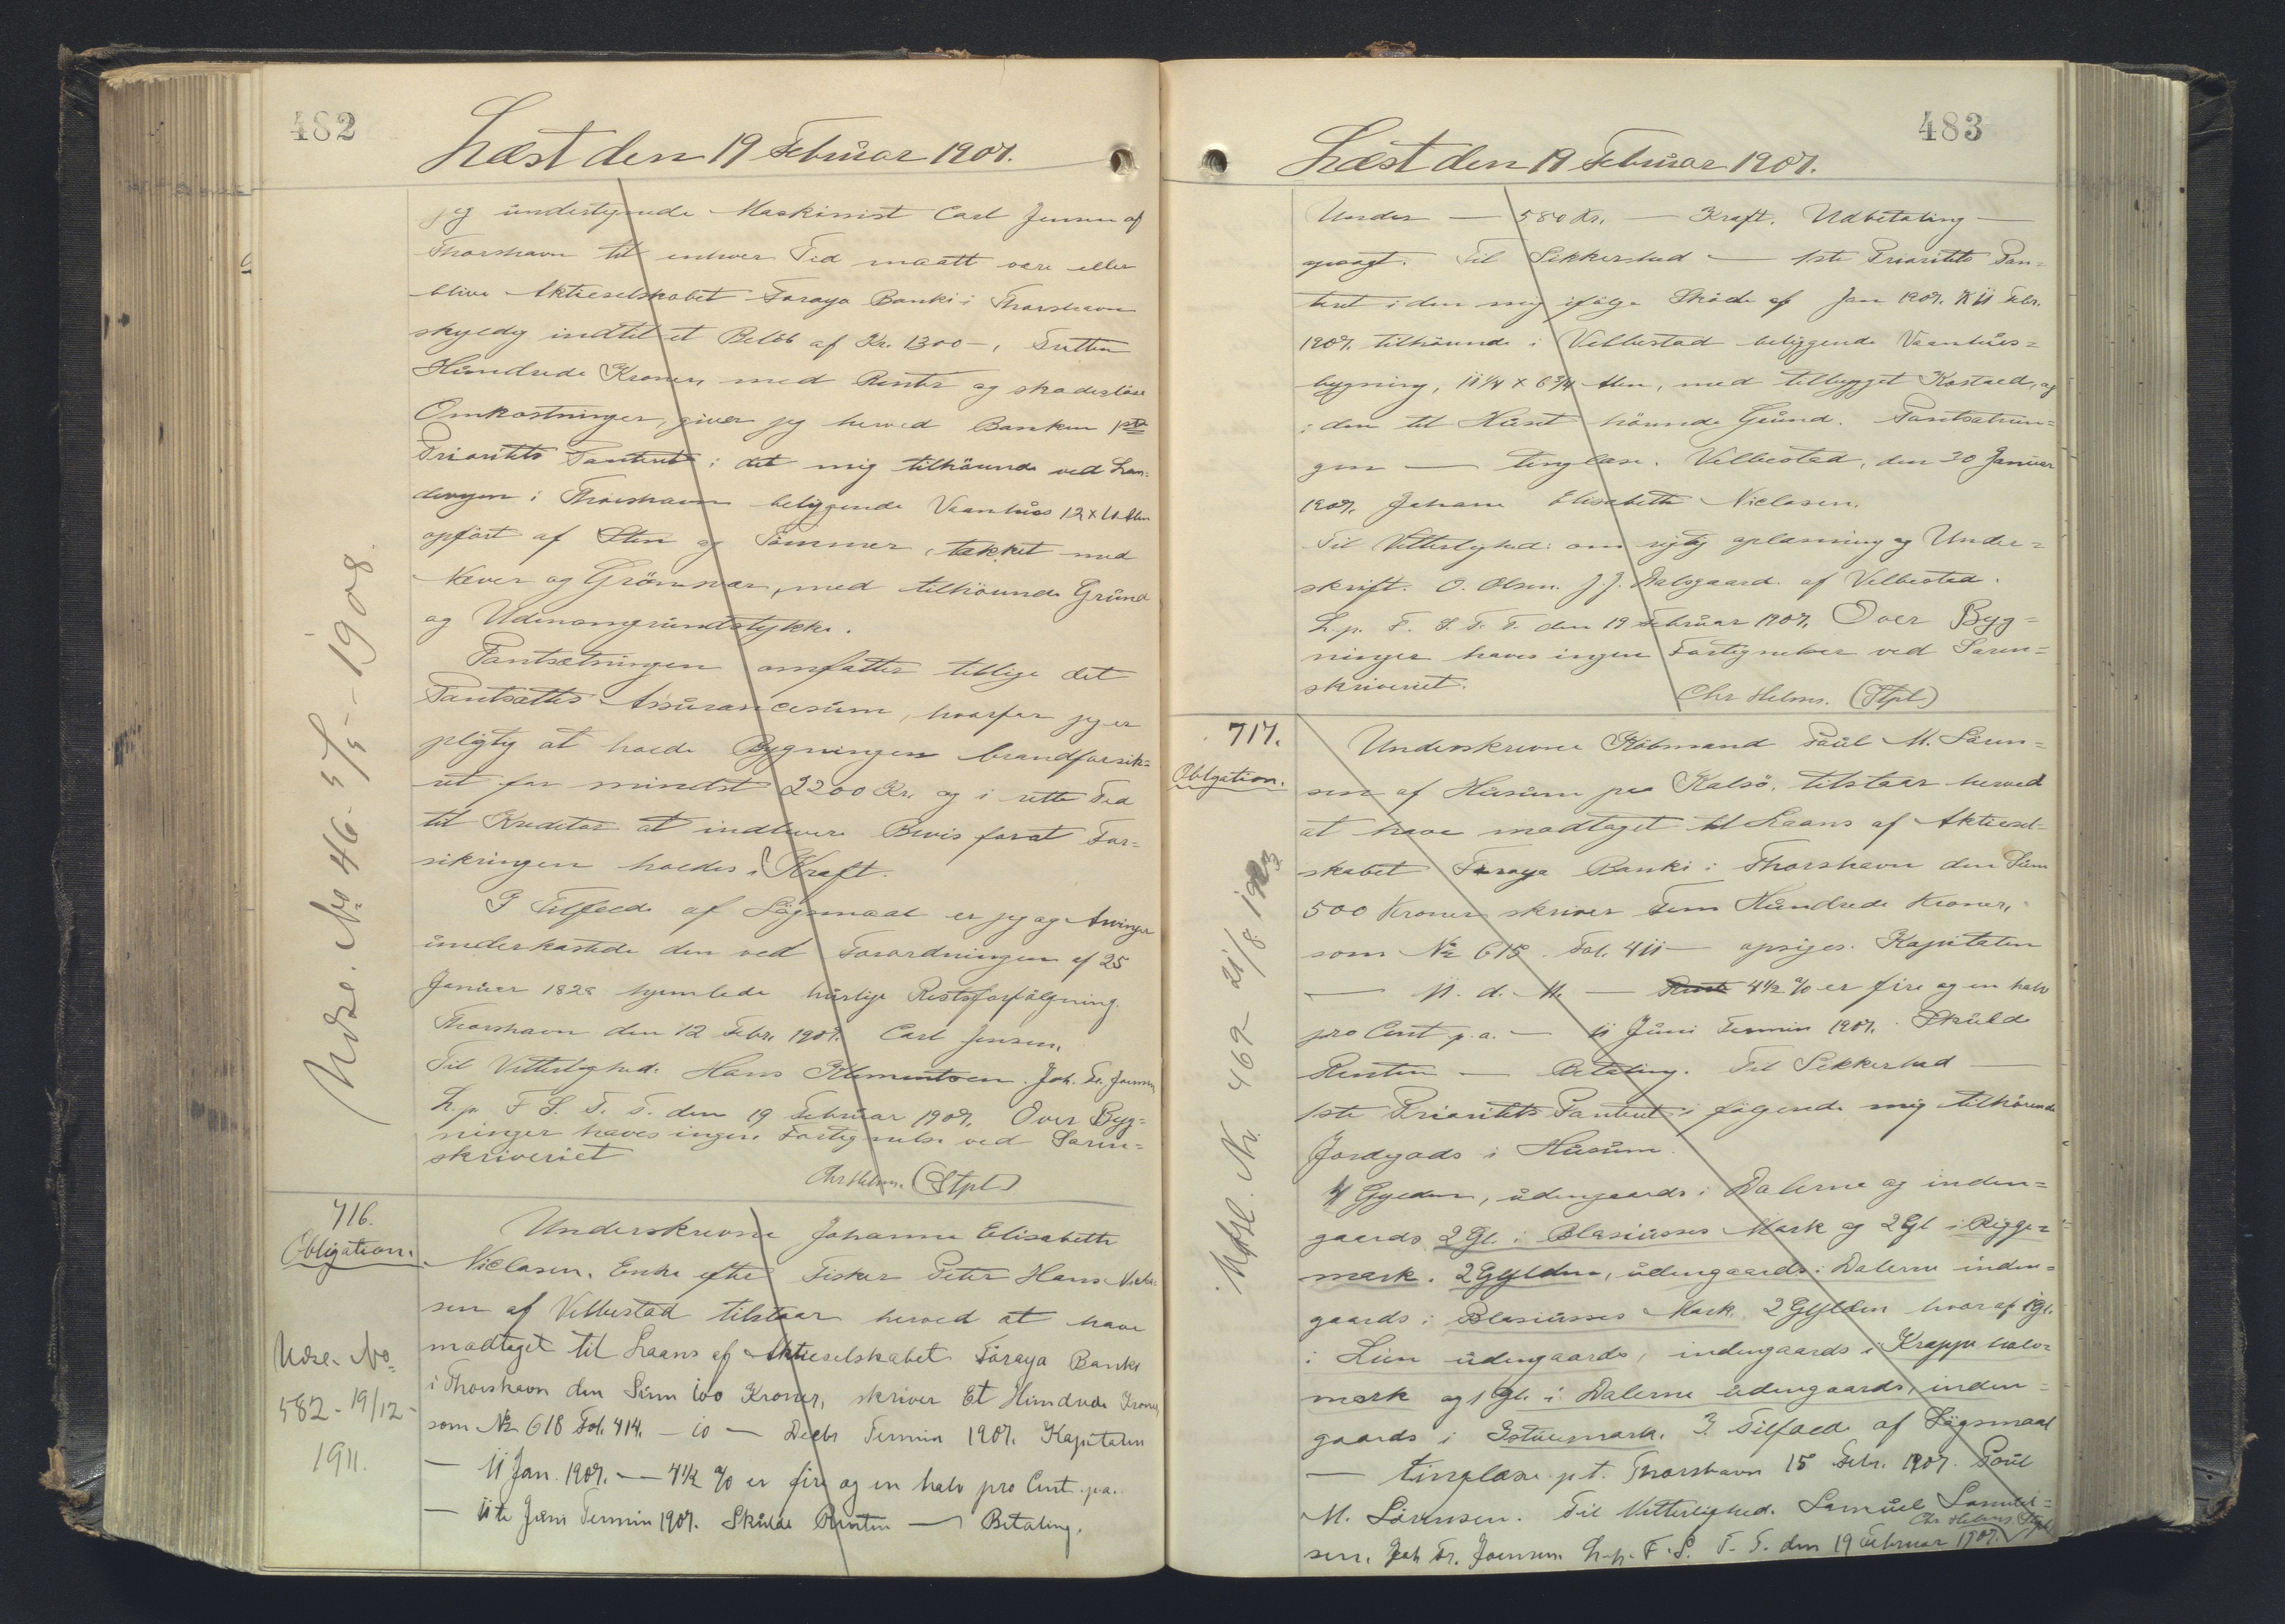 482
Læst den 19 Februar 1907.
jeg undertegnede Maskinist Carl Jensen af
Thorshavn til enhver Tid maatt være eller
blive Aktieselskabet Føroya Banki i Thorshavn
skyldig indtil et Beløb af Kr. 1300-, Tretten
Hundrede Kroner, med Renter og skadesløse
Omkostninger, giver jeg herved Banken 1ste
Prioritets Panteret i det mig tilhørende ved Lan-
devejen i Thorshavn beliggende Vaanhus 12 x Alen
opført af Sten og Tømmer, takket med
Næver og Grønsvær, med tilhørende Grund
og Udenomgrundstykke.
Pantsætningen omfatter tillige det
Pantsattes Assurancesum, hvorfor jeg er
pligtig at holde Bygningen brandforsik=
ret for mindst 2200 Kr. og i rette Tid
til Kreditor at indlevere Bevis for at For=
sikringen holdes i Kraft.
I Tilfælde af Søgsmaal er jeg og Arvinger
underkastede den ved Forordningen af 25
Januar 1828 hjemlede hurtige Retsforfølgning.
Thorshavn den 12 Febr. 1907. Carl Jensen.
Til Vitterlighed: Hans Klementsen. Joh. Fr. Joensen
L. p. F. S. T. T. den 19 Februar 1907. Over Byg=
ninger haves ingen Fortegnelse ved Soren=
skriveriet
Chr Helms. (Stpl)
Udsl. No 46 - 5/5 - 1908.
716.
Obligation.
Underskrevne Johanne Elisabeth
Niclasen, Enke efter Fisker Peter Hans Nicla=
sen af Velbestad tilstaar herved at have
modtaget til Laans af Aktieselskabet Føroya Banki
i Thorshavn den Sum 100 Kroner, skriver Et Hundrede Kroner
som No 618 Fol. 414. — 10 — Decbr Termin 1907. Kapitalen
— 11 Jan. 1907. — 4½ % er fire og en halv pro Cent. p.a.
— 11te Juni Termin 1907. Skulde Renten — Betaling.
Udsl. No
582 - 19/12 -
1911.
483
Læst den 19 Februar 1907.
Under — 580 Kr. — Kraft. Udbetaling —
opsagt. Til Sikkerhed — 1ste Prioritets Pan=
teret i den mig ifølge Skøde af Jan 1907. 11 Febr.
1907. tilhørende i Velbestad beliggende Vaanhus=
bygning, 11¼ x 6¾ Alen, med tilbygget Kostald, og
i den til Huset hørende Grund. Pantsætnin=
gen — tinglæse. Velbestad, den 30 Januar
1907. Johane Elisabeth Niclasen.
Til Vitterlighed: om rigtig oplæsning og Under=
skrift. O. Olsen. J. J. Dalsgaard af Velbestad.
L. p. F. S. T. T. den 19 Februar 1907. Over Byg=
ninger haves ingen Fortegnelser ved Soren=
skriveriet.
Chr Helms. (Stpl)
717.
Obligation.
Underskrevne Købmand Poul M. Søren=
sen af Husum paa Kalsø, tilstaar herved
at have modtaget til Laans af Aktiesel=
skabet Føroya Banki i Thorshavn den Sum
500 Kroner skriver Fem Hundrede Kroner,
som No 615. Fol. 411 — opsiges. Kapitalen
— p. d. — 4½ % er fire og en halv
pro Cent p. a. — 11 Juni Termin 1907. Skulde
Renten — Betaling. Til Sikkerhed —
1ste Prioritets Panteret i følgende mig tilhørende
Jordgods i Husum.
4 Gylden, udengaards i Dalerne og inden=
gaards 2 Gl. i Blasiusses Mark og 2 Gl i Rigge=
mark. 2 Gylden, udengaards i Dalerne inden=
gaards i Blasiusses Mark. 2 Gylden hvoraf 1 Gl.
i Lien udengaards, indengaards i Krappe halv=
mark og 1 Gl. i Dalerne udengaards, inden=
gaards i mark. I Tilfælde af Søgsmaal
— tinglæse. p.t. Thorshavn 15 Febr. 1907. Poul
M. Sørensen. Til Vitterlighed. Samuel Samuel=
sen. Joh Fr. Joensen. L. p. F. S. T. T. den 19 Februar 1907.
Chr Helms (Stpl)
Udsl. Nr. 469 21/8 1923